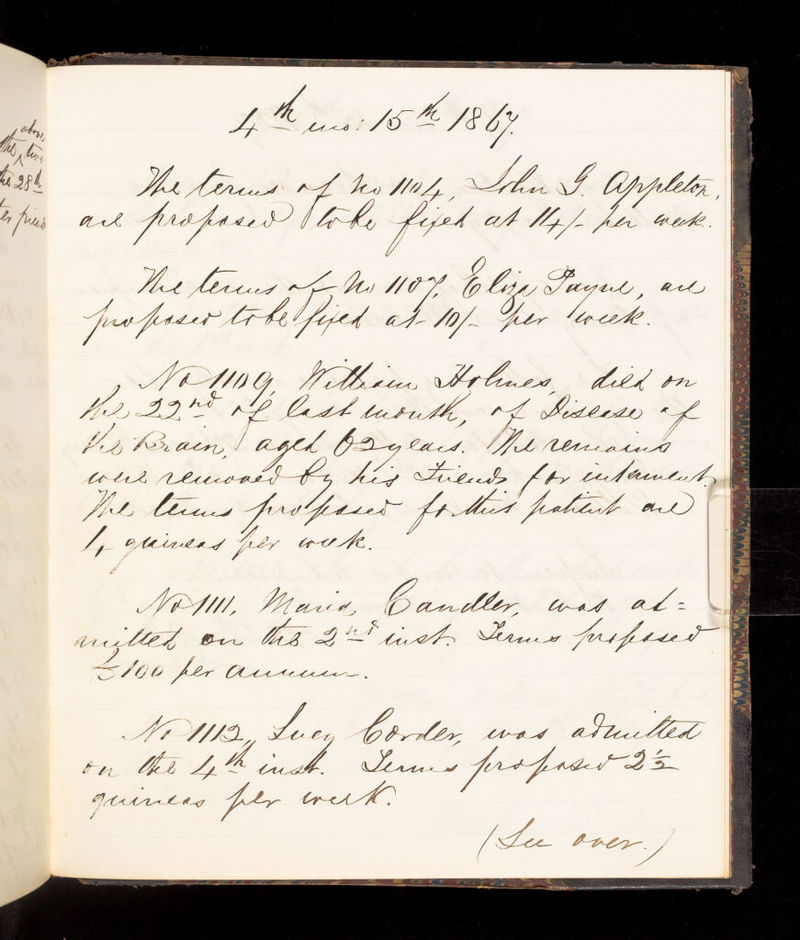 above
the two
the 28th
4th mo: 15th 1867.
The terms of No 1104, John G. Appleton,
are proposed to be fixed at 14/- per week.
The terms of No 1107, Eliza Payne, are
proposed to be fixed at 10/- per week.
No 1109, William Holmes, died on
the 22nd of last month, of Disease of
the Brain, aged 62 years. The remains
were removed by his Friends for interment.
The terms proposed for this patient are
guineas per week.
No 1111, Maria Candler, was ad=
mitted on the 2nd inst. Terms proposed
£100 per annum.
No 1112, Lucy Corder, was admitted
on the 4th inst. Terms proposed 2½
guineas per week.
(See over.)